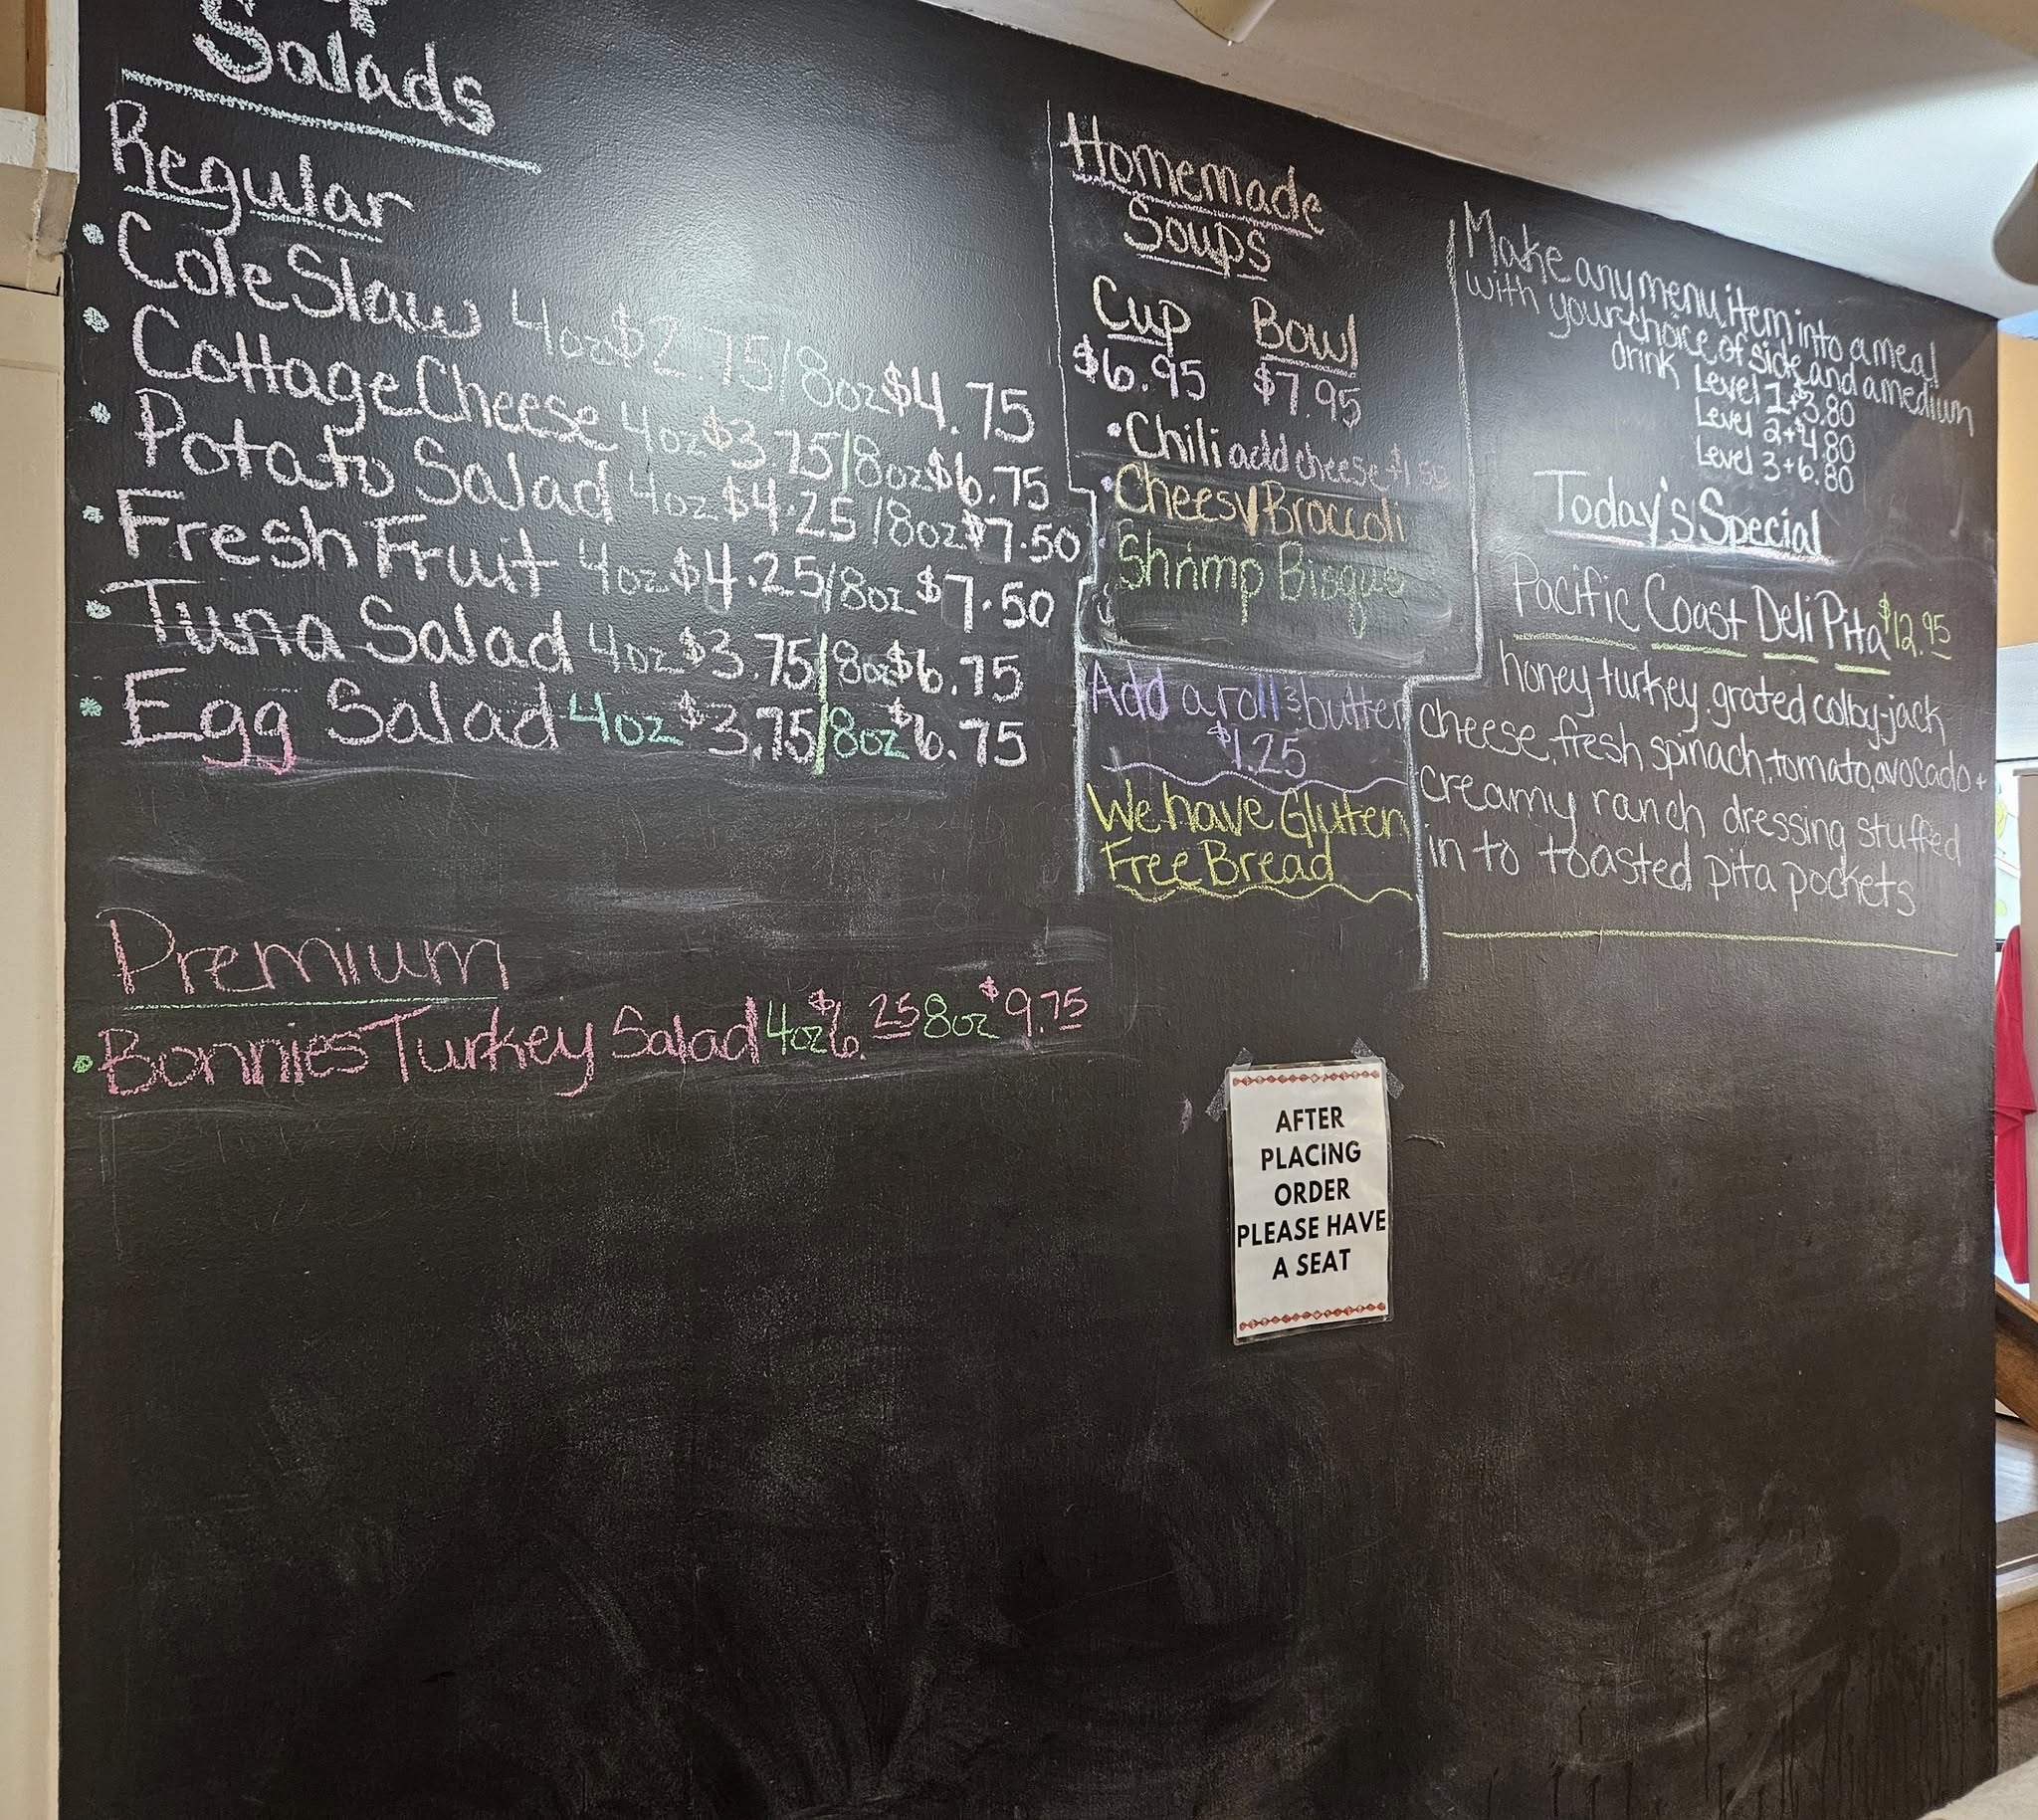 Salads
Regular
• Cole Slaw 4oz $2.75/8oz $4.75
• Cottage Cheese 4oz $3.75/8oz $6.75
• Potato Salad 4oz $4.25/8oz $7.50
• Fresh Fruit 4oz $4.25/8oz $7.50
• Tuna Salad 4oz $3.75/8oz $6.75
• Egg Salad 4oz $3.75/8oz $6.75
Premium
• Bonnies Turkey Salad 4oz $6.25 8oz $9.75
Homemade
Soups
Cup Bowl
$6.95 $7.95
• Chili add cheese +$1.50
• Cheesy Broccoli
Shrimp Bisque
Add a roll & butter
$1.25
We have Gluten
Free Bread
Make any menu item into a meal
with your choice of side and a medium
drink Level 1 + 3.80
Level 2 + 4.80
Level 3 + 6.80
Today's Special
Pacific Coast Deli Pita $12.95
honey turkey, grated colby-jack
cheese, fresh spinach, tomato, avocado +
creamy ranch dressing stuffed
in to toasted pita pockets
AFTER
PLACING
ORDER
PLEASE HAVE
A SEAT